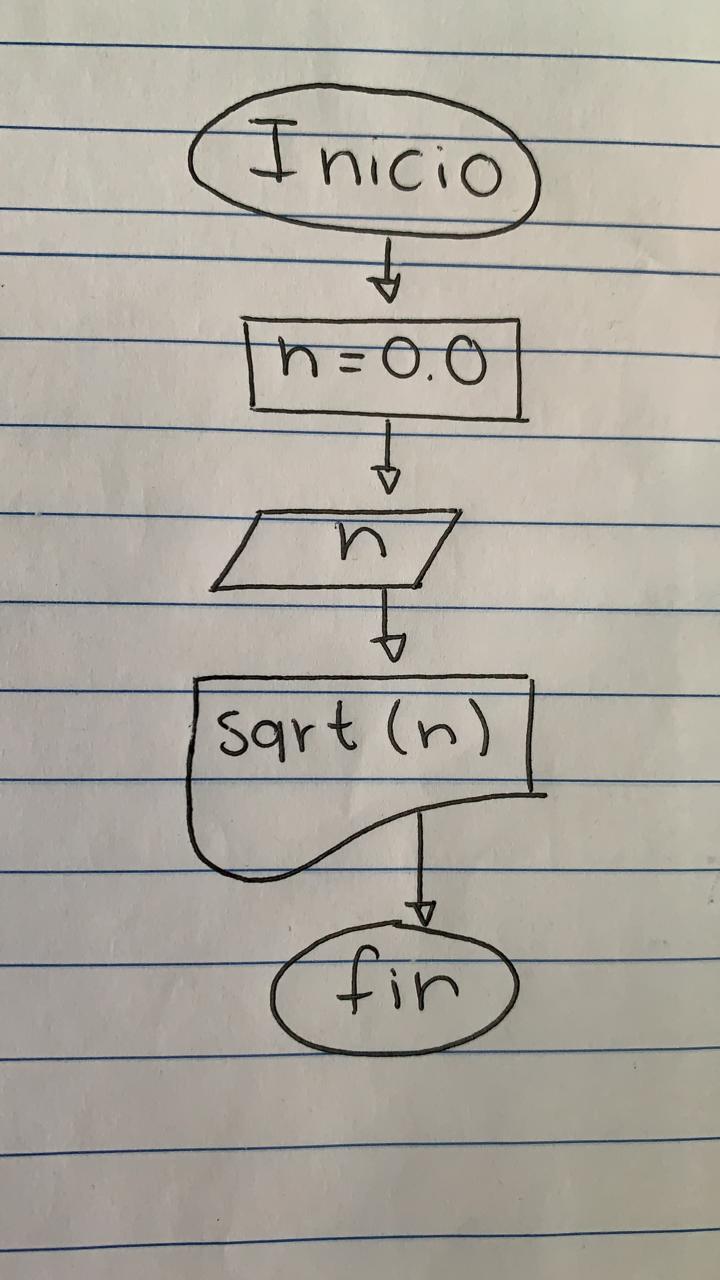 Inicio
n = 0.0
n
sqrt (n)
fin